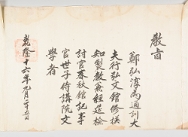 教旨
鄭弘淳爲通訓大
夫行弘文館修撰
知製教兼經筵檢
討官春秋館記事
官世子侍講院文
學者
乾隆十六年九月二十日